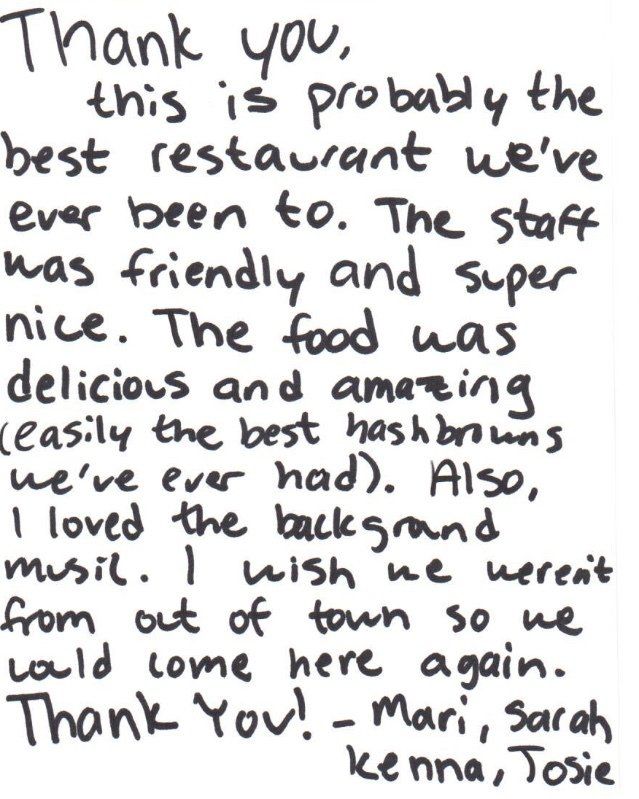 Thank you,
this is probably the
best restaurant we've
ever been to. The staff
was friendly and super
nice. The food was
delicious and amazing
(easily the best hashbrowns
we've ever had). Also,
I loved the background
music. I wish we weren't
from out of town so we
could come here again.
Thank You! - Mari, Sarah
Kenna, Josie